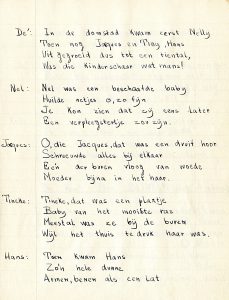 De': In de domstad kwam eerst Nelly
Toen nog Jacques en Tiny, Hans
Uit gegroeid dus tot een tiental,
Was die kinderschaar wat mans!
Nel: Nel was een beschaafde baby
Huilde netjes, zo fijn
Je kon zien dat zij eens later
Een verpleegstertje zou zijn.
Jacques: O, die Jacques, dat was een druit hoor
Schreeuwde alles bij elkaar
Eén der buren vloog van woede
Moeder bijna in het haar.
Tineke: Tineke, dat was een plaatje
Baby van het mooiste ras
Meestal was ze bij de buren
Wijl het thuis te druk haar was.
Hans: Toen kwam Hans
Zo'n hele dunne
Armen, benen als een lat